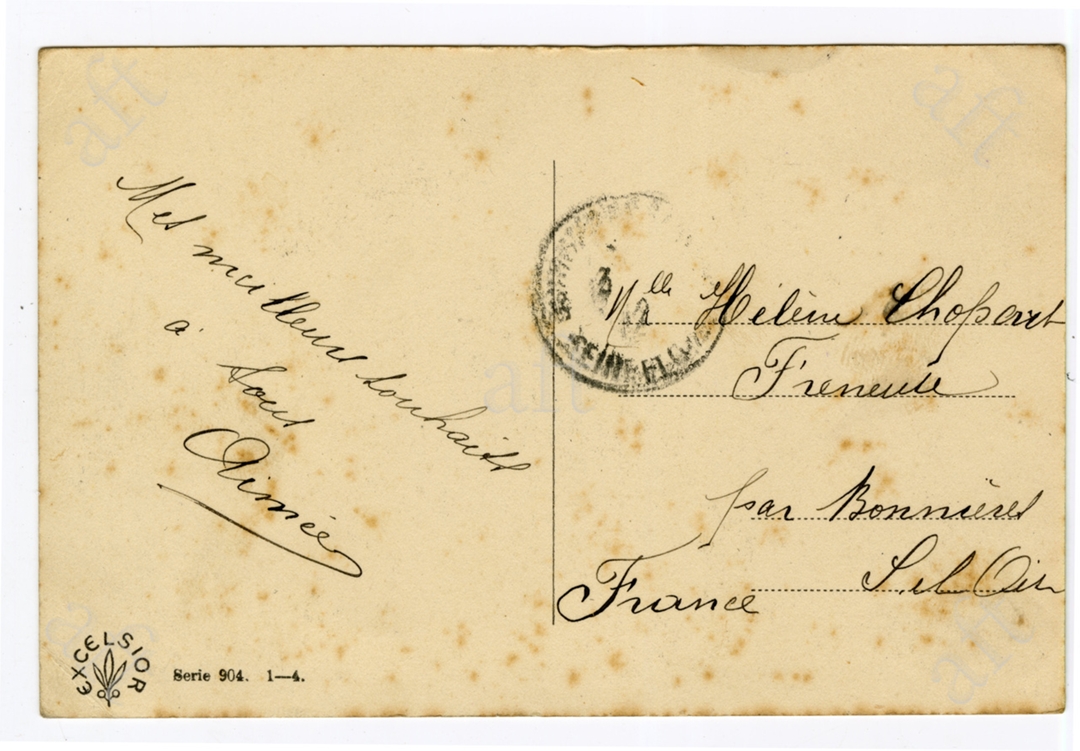 Mes meilleurs souhaits
à
tous
Aimée
Mlle Hélène Chopart
Freneuse
par Bonnières
S. et Oise
France
3
12
EXCELSIOR
Serie 904. 1—4.
aft
aft
aft
aft
aft